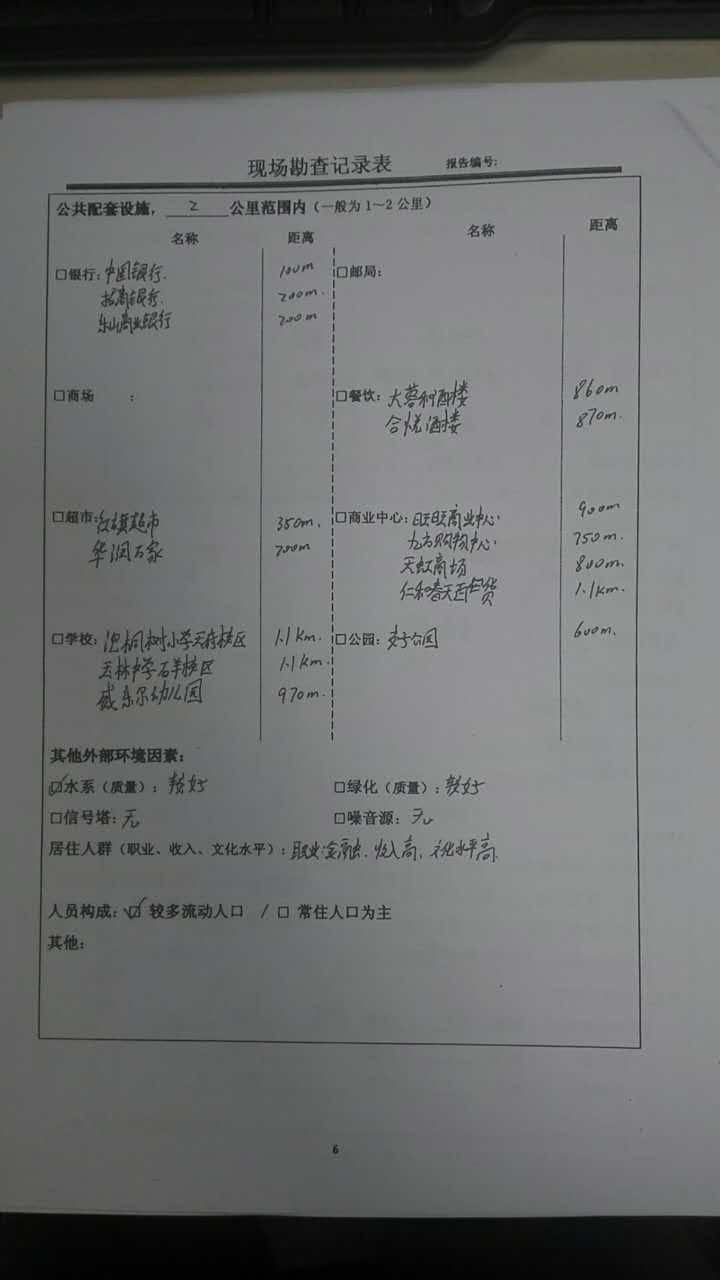 现场勘查记录表 报告编号:
公共配套设施， 2 公里范围内（一般为 1～2 公里）
名称 距离 名称 距离
□银行: 中国银行. 100m □邮局:
招商银行. 200m.
乐山商业银行 200m
□商场 : □餐饮: 大蓉和酒楼 860m
合悦酒楼 870m.
□超市: 红旗超市 350m. □商业中心: 旺旺商业中心. 900m
华润万家 700m 九方购物中心. 750m.
天虹商场 800m.
仁和春天百货 1.1km.
□学校: 泡桐树小学天府校区 1.1km. □公园: 交子公园 600m.
玉林中学石羊校区 1.1km.
威东尔幼儿园 970m.
其他外部环境因素:
☑水系（质量）: 较好 □绿化（质量）: 较好
□信号塔: 无 □噪音源: 无
居住人群（职业、收入、文化水平）: 职业:金融. 收入高, 文化水平高.
人员构成: ☑ 较多流动人口 / □ 常住人口为主
其他:
6